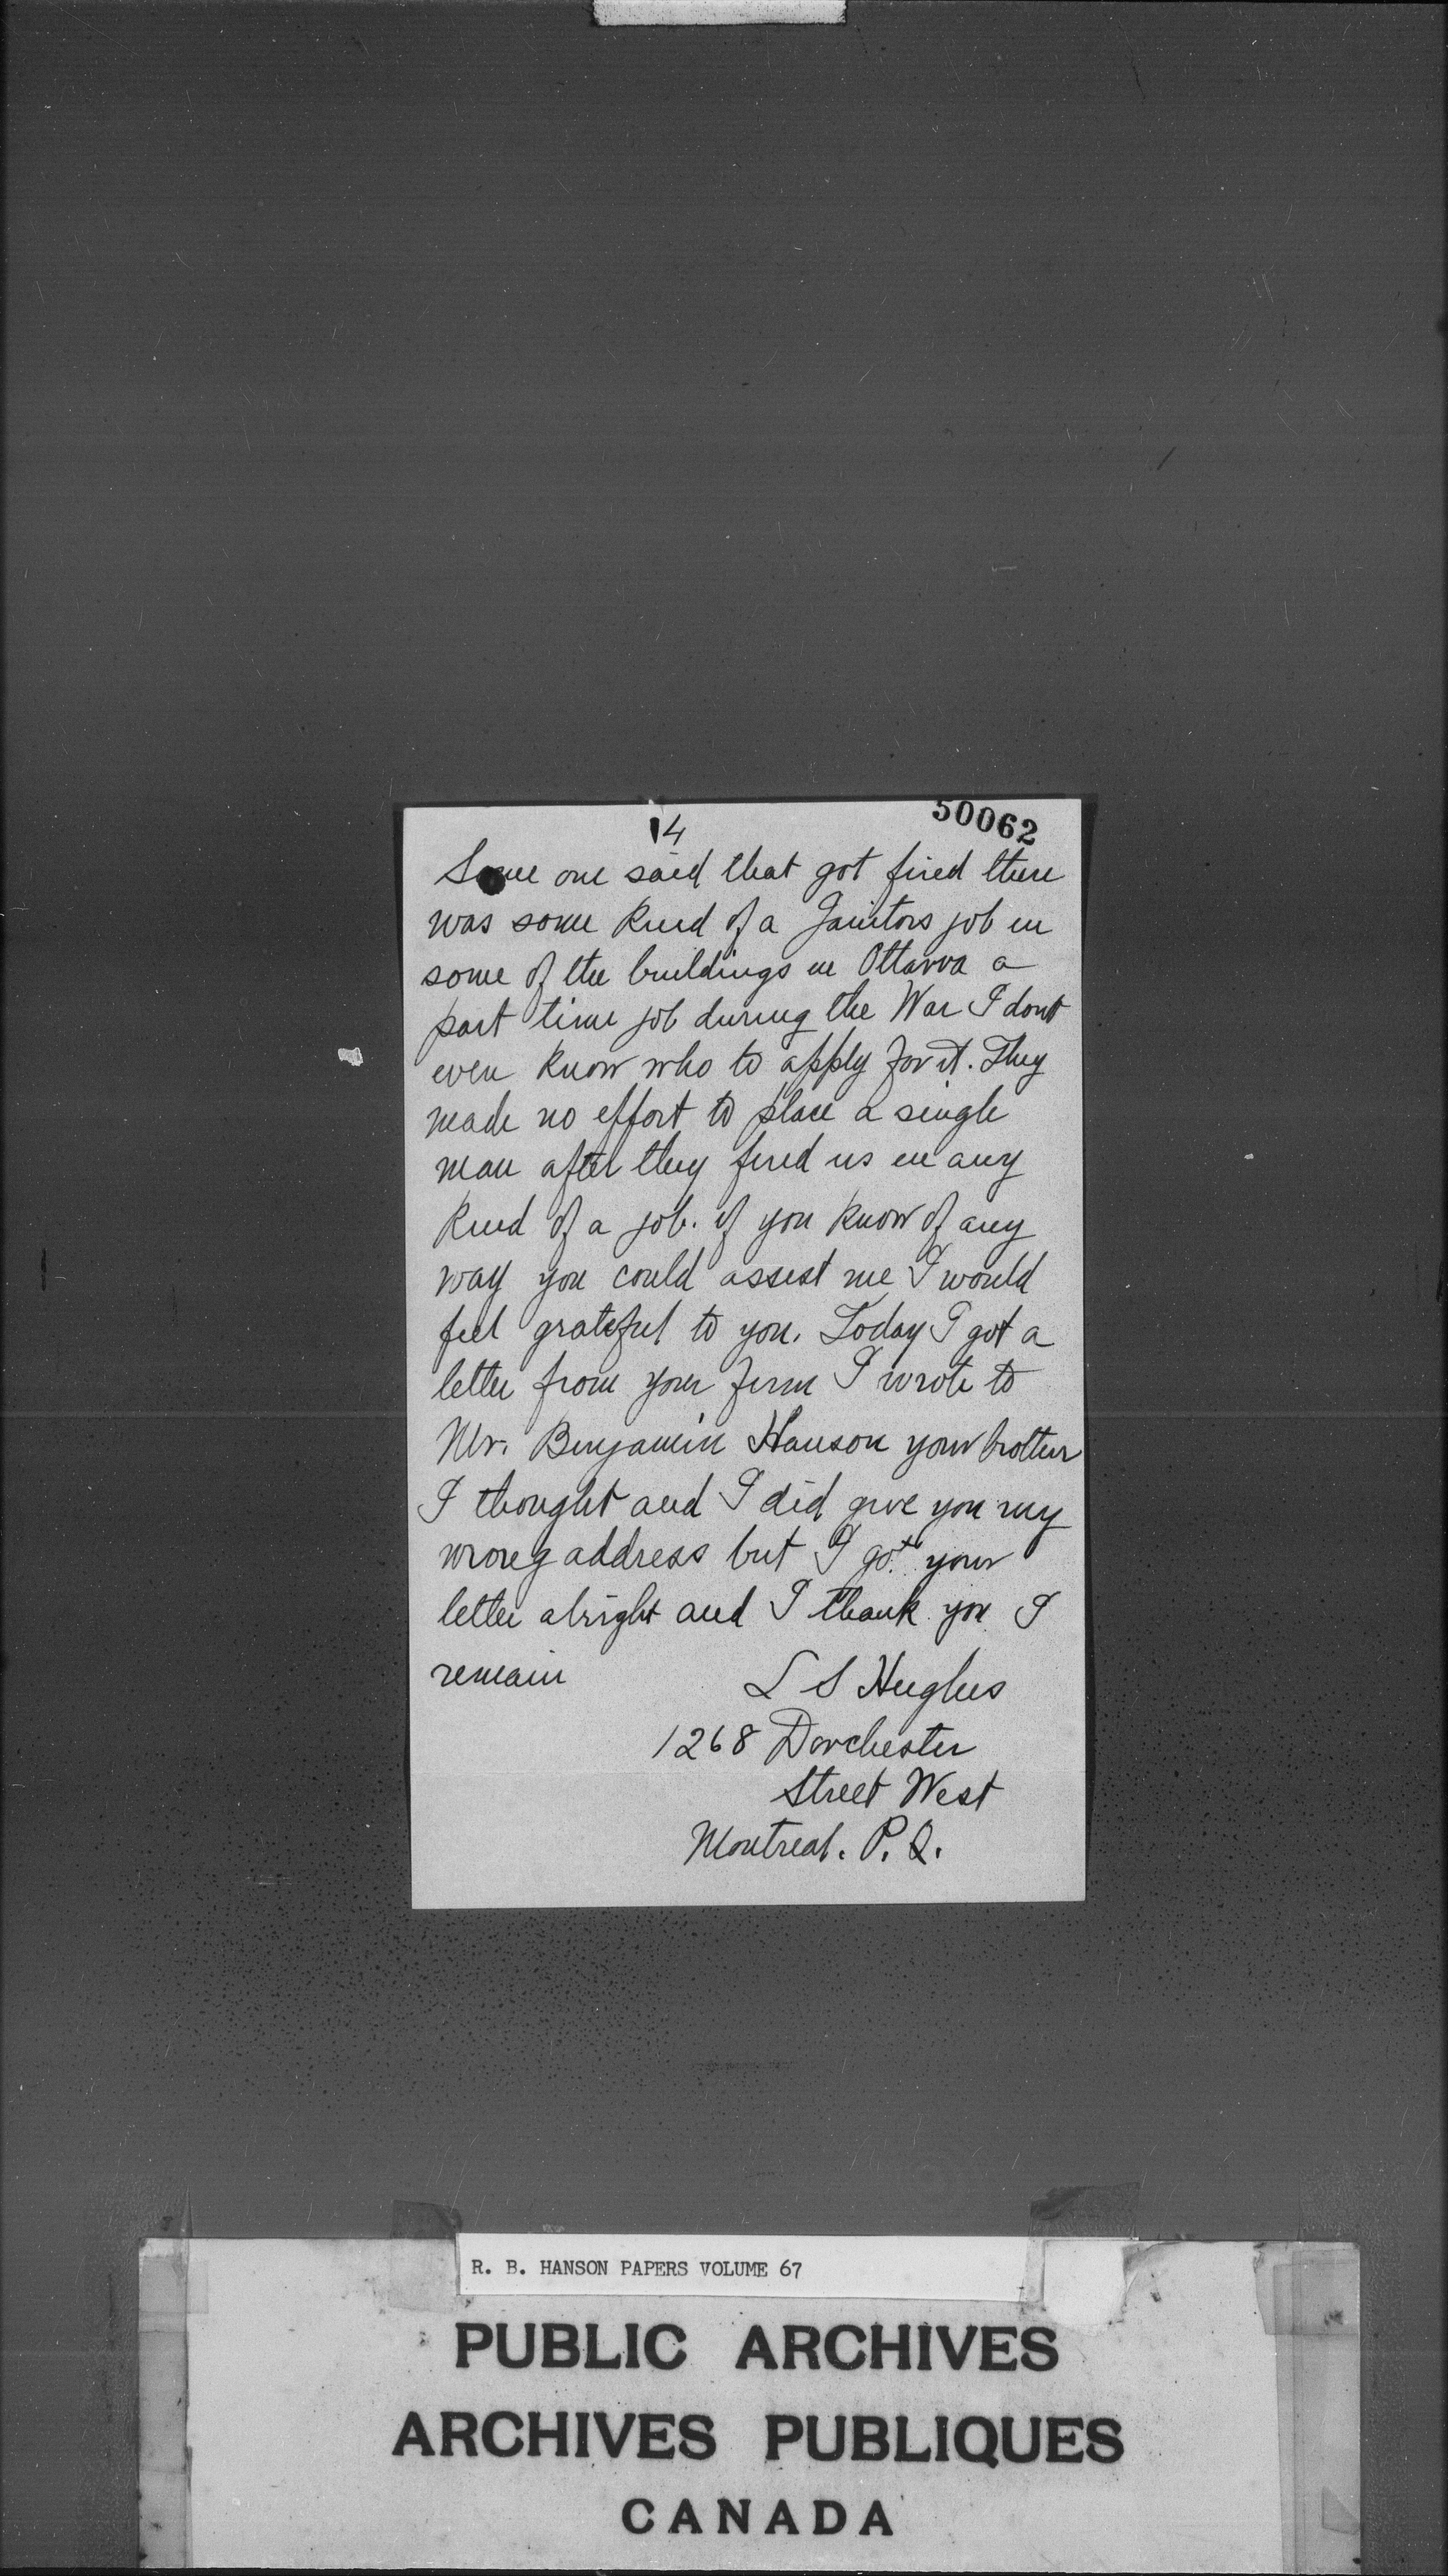 14
50062
Some one said that got fired there
was some kind of a Janitors job in
some of the buildings in Ottawa a
part time job during the War I dont
even know who to apply for it. They
made no effort to place a single
man after they fired us in any
kind of a job. if you know of any
way you could assist me I would
feel grateful to you. Today I got a
letter from your firm I wrote to
Mr. Benjamin Hanson your brother
I thought and I did give you my
wrong address but I got your
letter alright and I thank you I
remain
L S Hughes
1268 Dorchester
Street West
Montreal. P. Q.
R. B. HANSON PAPERS VOLUME 67
PUBLIC ARCHIVES
ARCHIVES PUBLIQUES
CANADA